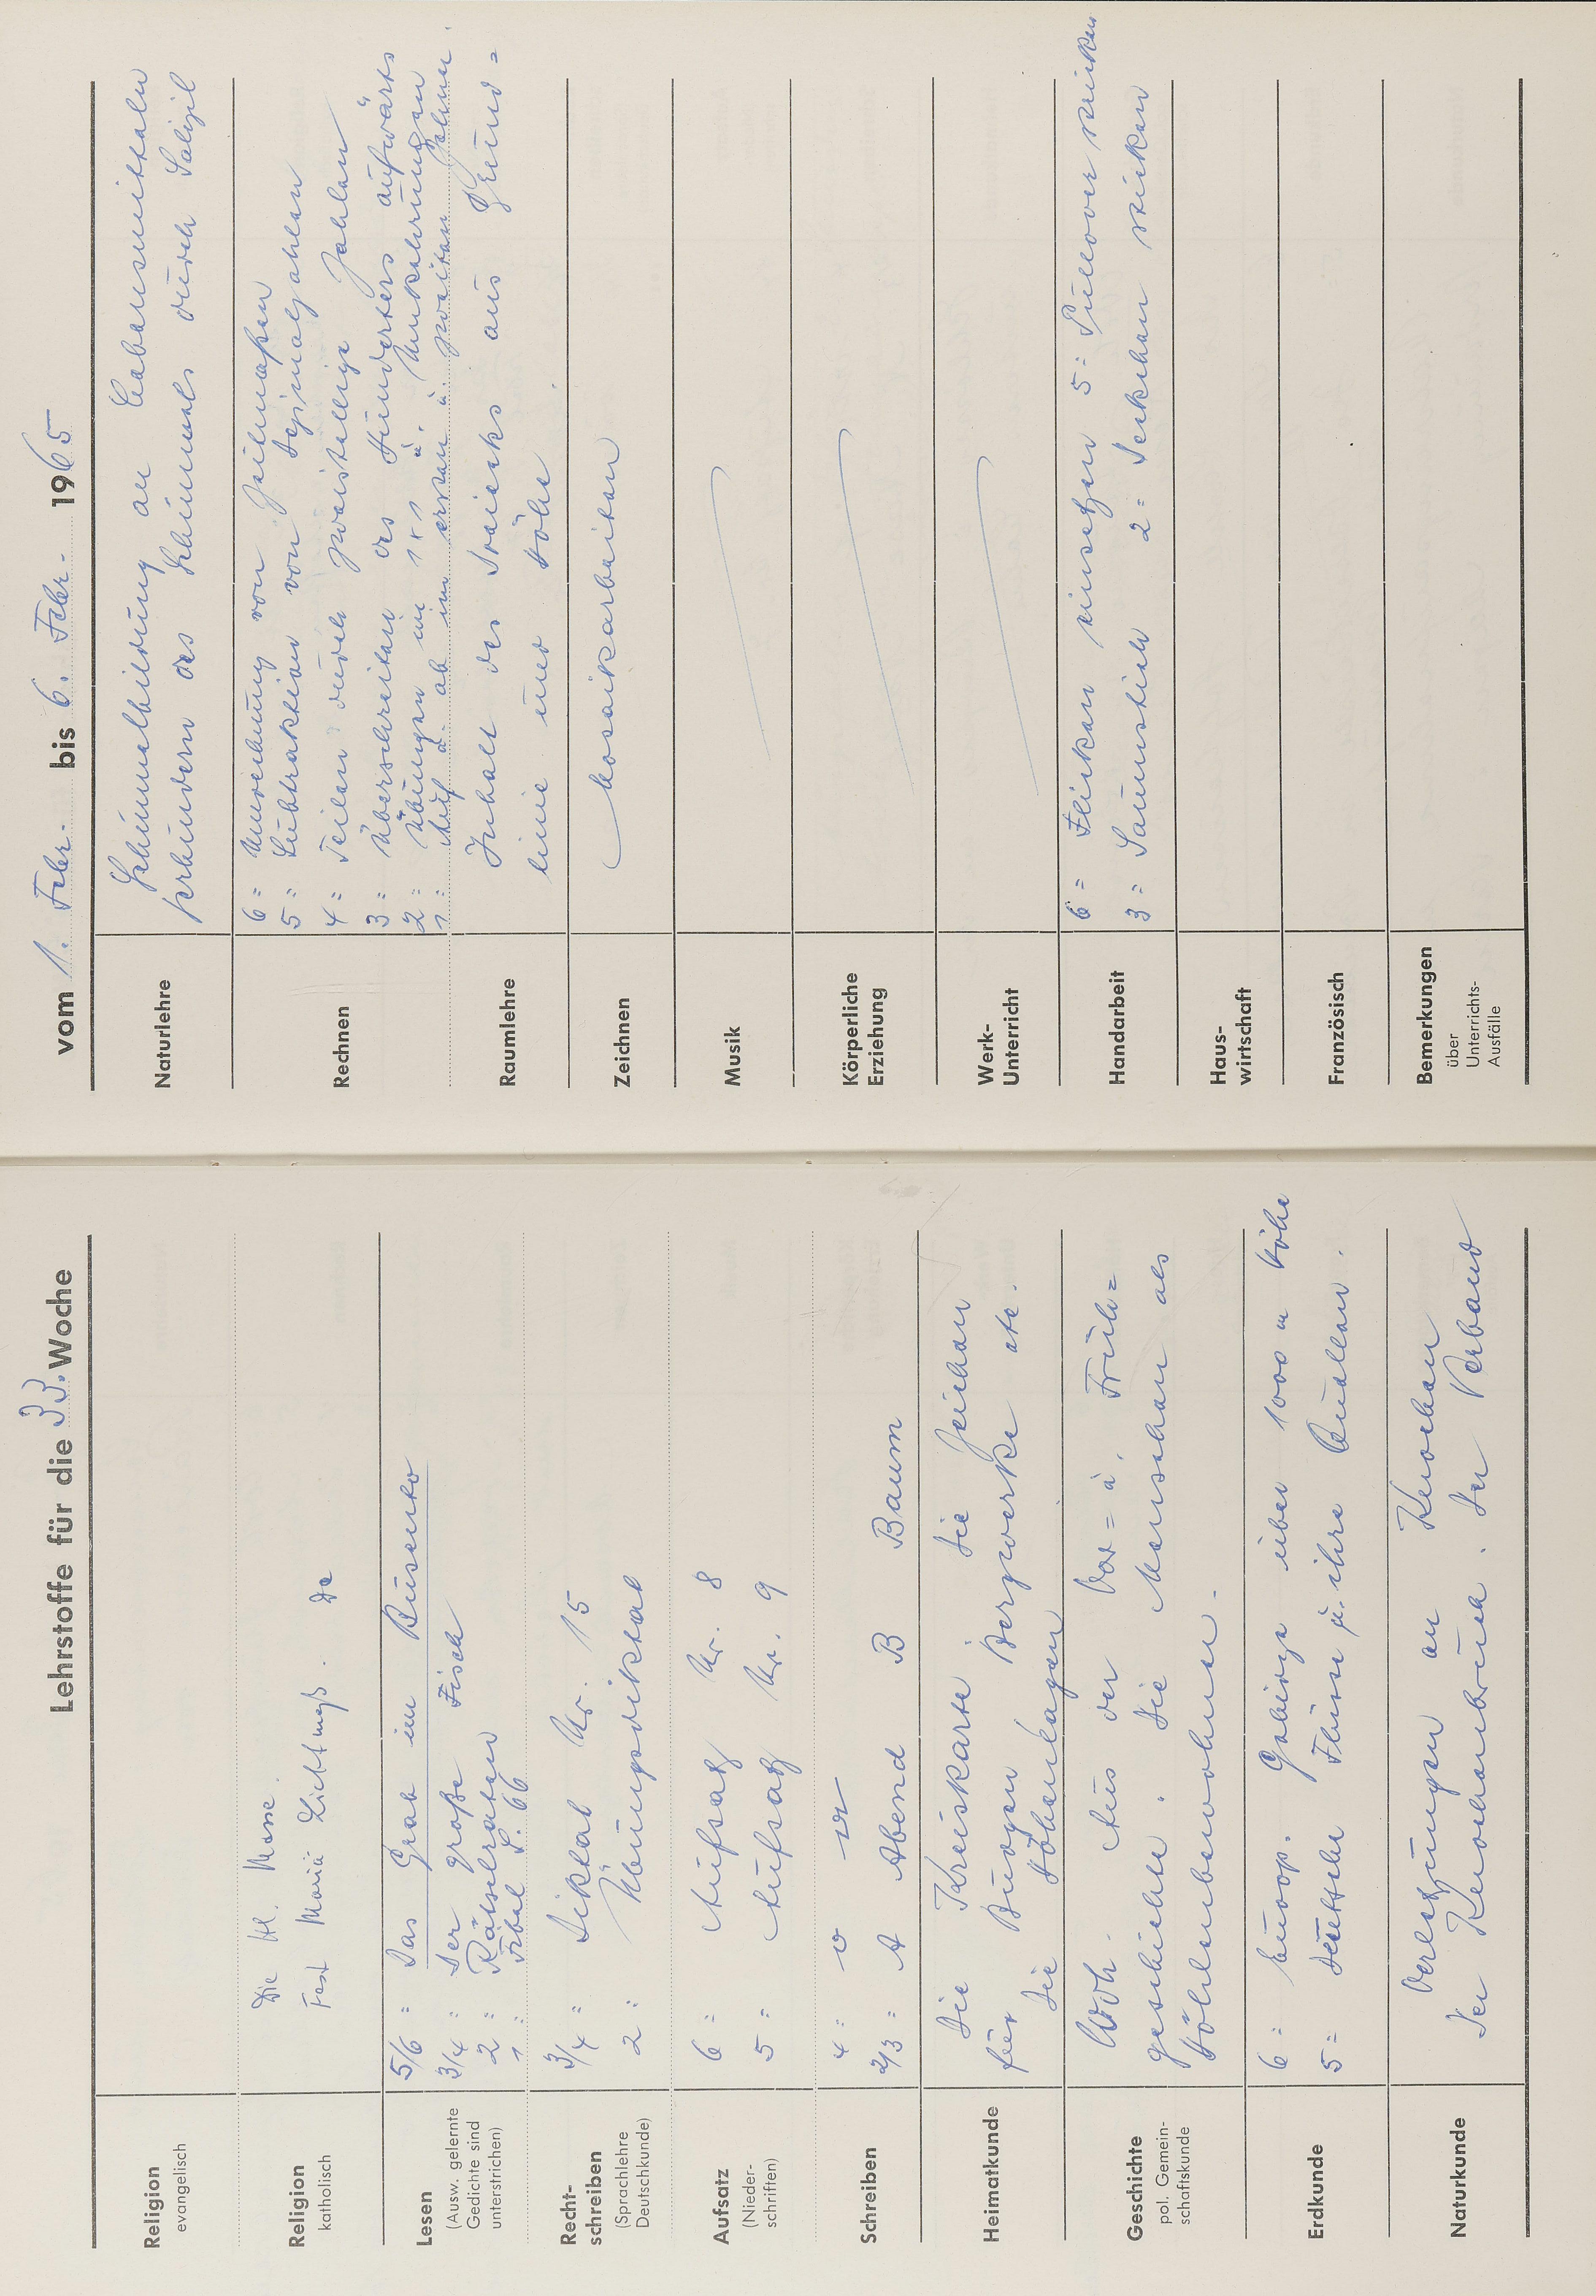 Lehrstoffe für die 33. Woche
Religion
evangelisch
Religion
katholisch
Die Hl. Messe.
Fest Mariä Lichtmeß.
Lesen
(Ausw. gelernte
Gedichte sind
unterstrichen)
5/6 = Das Grab im Busento
3/4 = Der große Fisch
2 = Rätselraten
1 = Fibel S. 66
Recht-
schreiben
(Sprachlehre
Deutschkunde)
3/4 = Diktat Nr. 15
2 = Übungsdiktat
Aufsatz
(Nieder-
schriften)
6 = Aufsatz Nr. 8
5 = Aufsatz Nr. 9
Schreiben
4 = v v w
2/3 = A Abend B Baum
Heimatkunde
Die Kreiskarte. Die Zeichen
für Burgen Bergwerke etc.
Die Höhenlagen
Geschichte
pol. Gemein-
schaftskunde
Aus der Vor= u. Früh=
geschichte. Die Menschen als
Höhlenbewohner.
Erdkunde
6 = Europ. Gebirge über 1000 m Höhe
5 = Deutsche Flüsse u. ihre Quellen.
Naturkunde
Verletzungen an Knochen
Der Knochenbruch. Der Verband
vom 1. Febr. bis 6. Febr. 1965
Naturlehre
Schimmelbildung an Lebensmitteln
des Schimmels durch Salizil
Rechnen
6 = Umrechnung von Zeitmaßen
5 = Subtraktion von Dezimalzahlen
4 = Teilen durch zweistellige Zahlen
3 = Überschreiten des Hunderters aufwärts
2 = Übungen im 1x1 u. Umkehrungen
1 = Auf u. ab im ersten u. zweiten Zehner.
Raumlehre
Inhalt des Dreiecks aus Grund=
linie und Höhe
Zeichnen
Mosaikarbeiten
Musik
Körperliche
Erziehung
Werk-
Unterricht
Handarbeit
6 = Flicken einsetzen 5 = Pullover stricken
3 = Saumstich 2 = Deckchen sticken
Haus-
wirtschaft
Französisch
Bemerkungen
über
Unterrichts-
Ausfälle